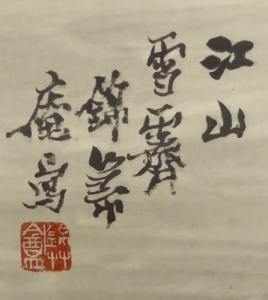 江山
雪霽
錦
庵寫